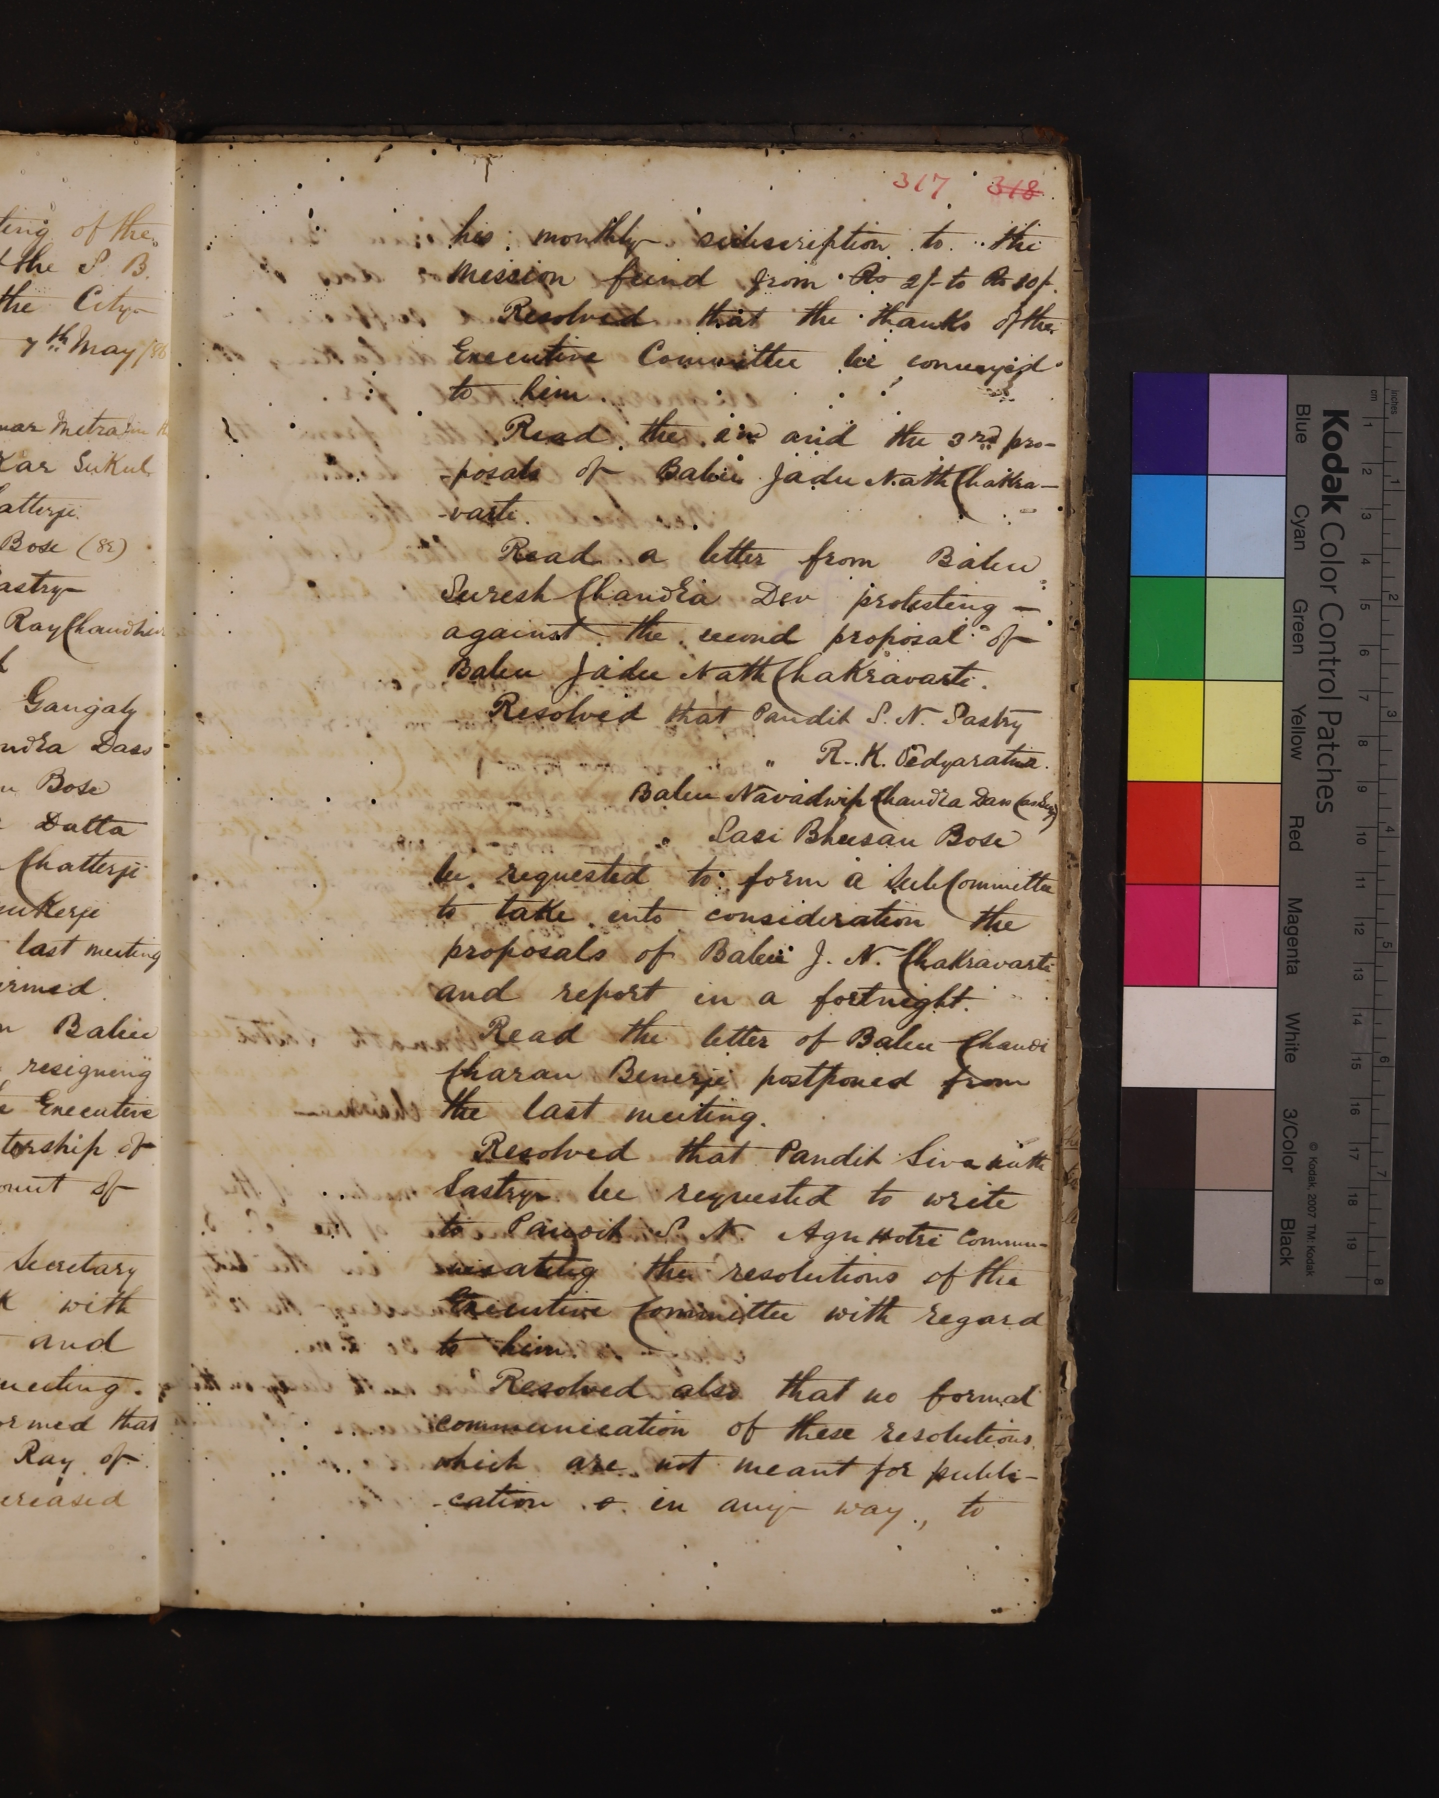 ting of the
the S. B.
the City
7th May /86
mar Mitra
Kar Sukul
atterji
Bose (82)
astry
Ray Chaudhuri
Gangaly
ndra Dass
Bose
Datta
Chatterji
ukerje
last meeting
irmed.
n Babu
resigning
Executive
torship of
ount of
Secretary
k with
and
meeting.
ormed that
Ray of
creased
317 318
his monthly subscription to the
Mission fund from Rs 2/- to Rs 10/-.
Resolved that the thanks of the
Executive Committee be conveyed
to him.
Read the 2nd and the 3rd pro-
-posals of Babu Jadu Nath Chakra-
-varti.
Read a letter from Babu
Suresh Chandra Dev protesting -
against the second proposal of
Babu Jadu Nath Chakravarti.
Resolved that Pandit S. N. Sastry
" R. K. Vidyaratna.
Babu Navadwip Chandra Dass
" Sasi Bhusan Bose
be requested to form a SubCommittee
to take into consideration the
proposals of Babu J. N. Chakravarti
and report in a fortnight.
Read the letter of Babu Chandi
Charan Benerje postponed from
the last meeting.
Resolved that Pandit Siva nath
Sastry be requested to write
to Pandit S. N. Agni Hotri Commu-
nicating the resolutions of the
Executive Committee with regard
to him.
Resolved also that no formal
communication of these resolutions
which are not meant for publi-
-cation in any way, to
Kodak Color Control Patches
Blue Cyan Green Yellow Red Magenta White 3/Color Black
© Kodak 2007 TM: Kodak
inches 1 2 3 4 5 6 7 8
cm 1 2 3 4 5 6 7 8 9 10 11 12 13 14 15 16 17 18 19